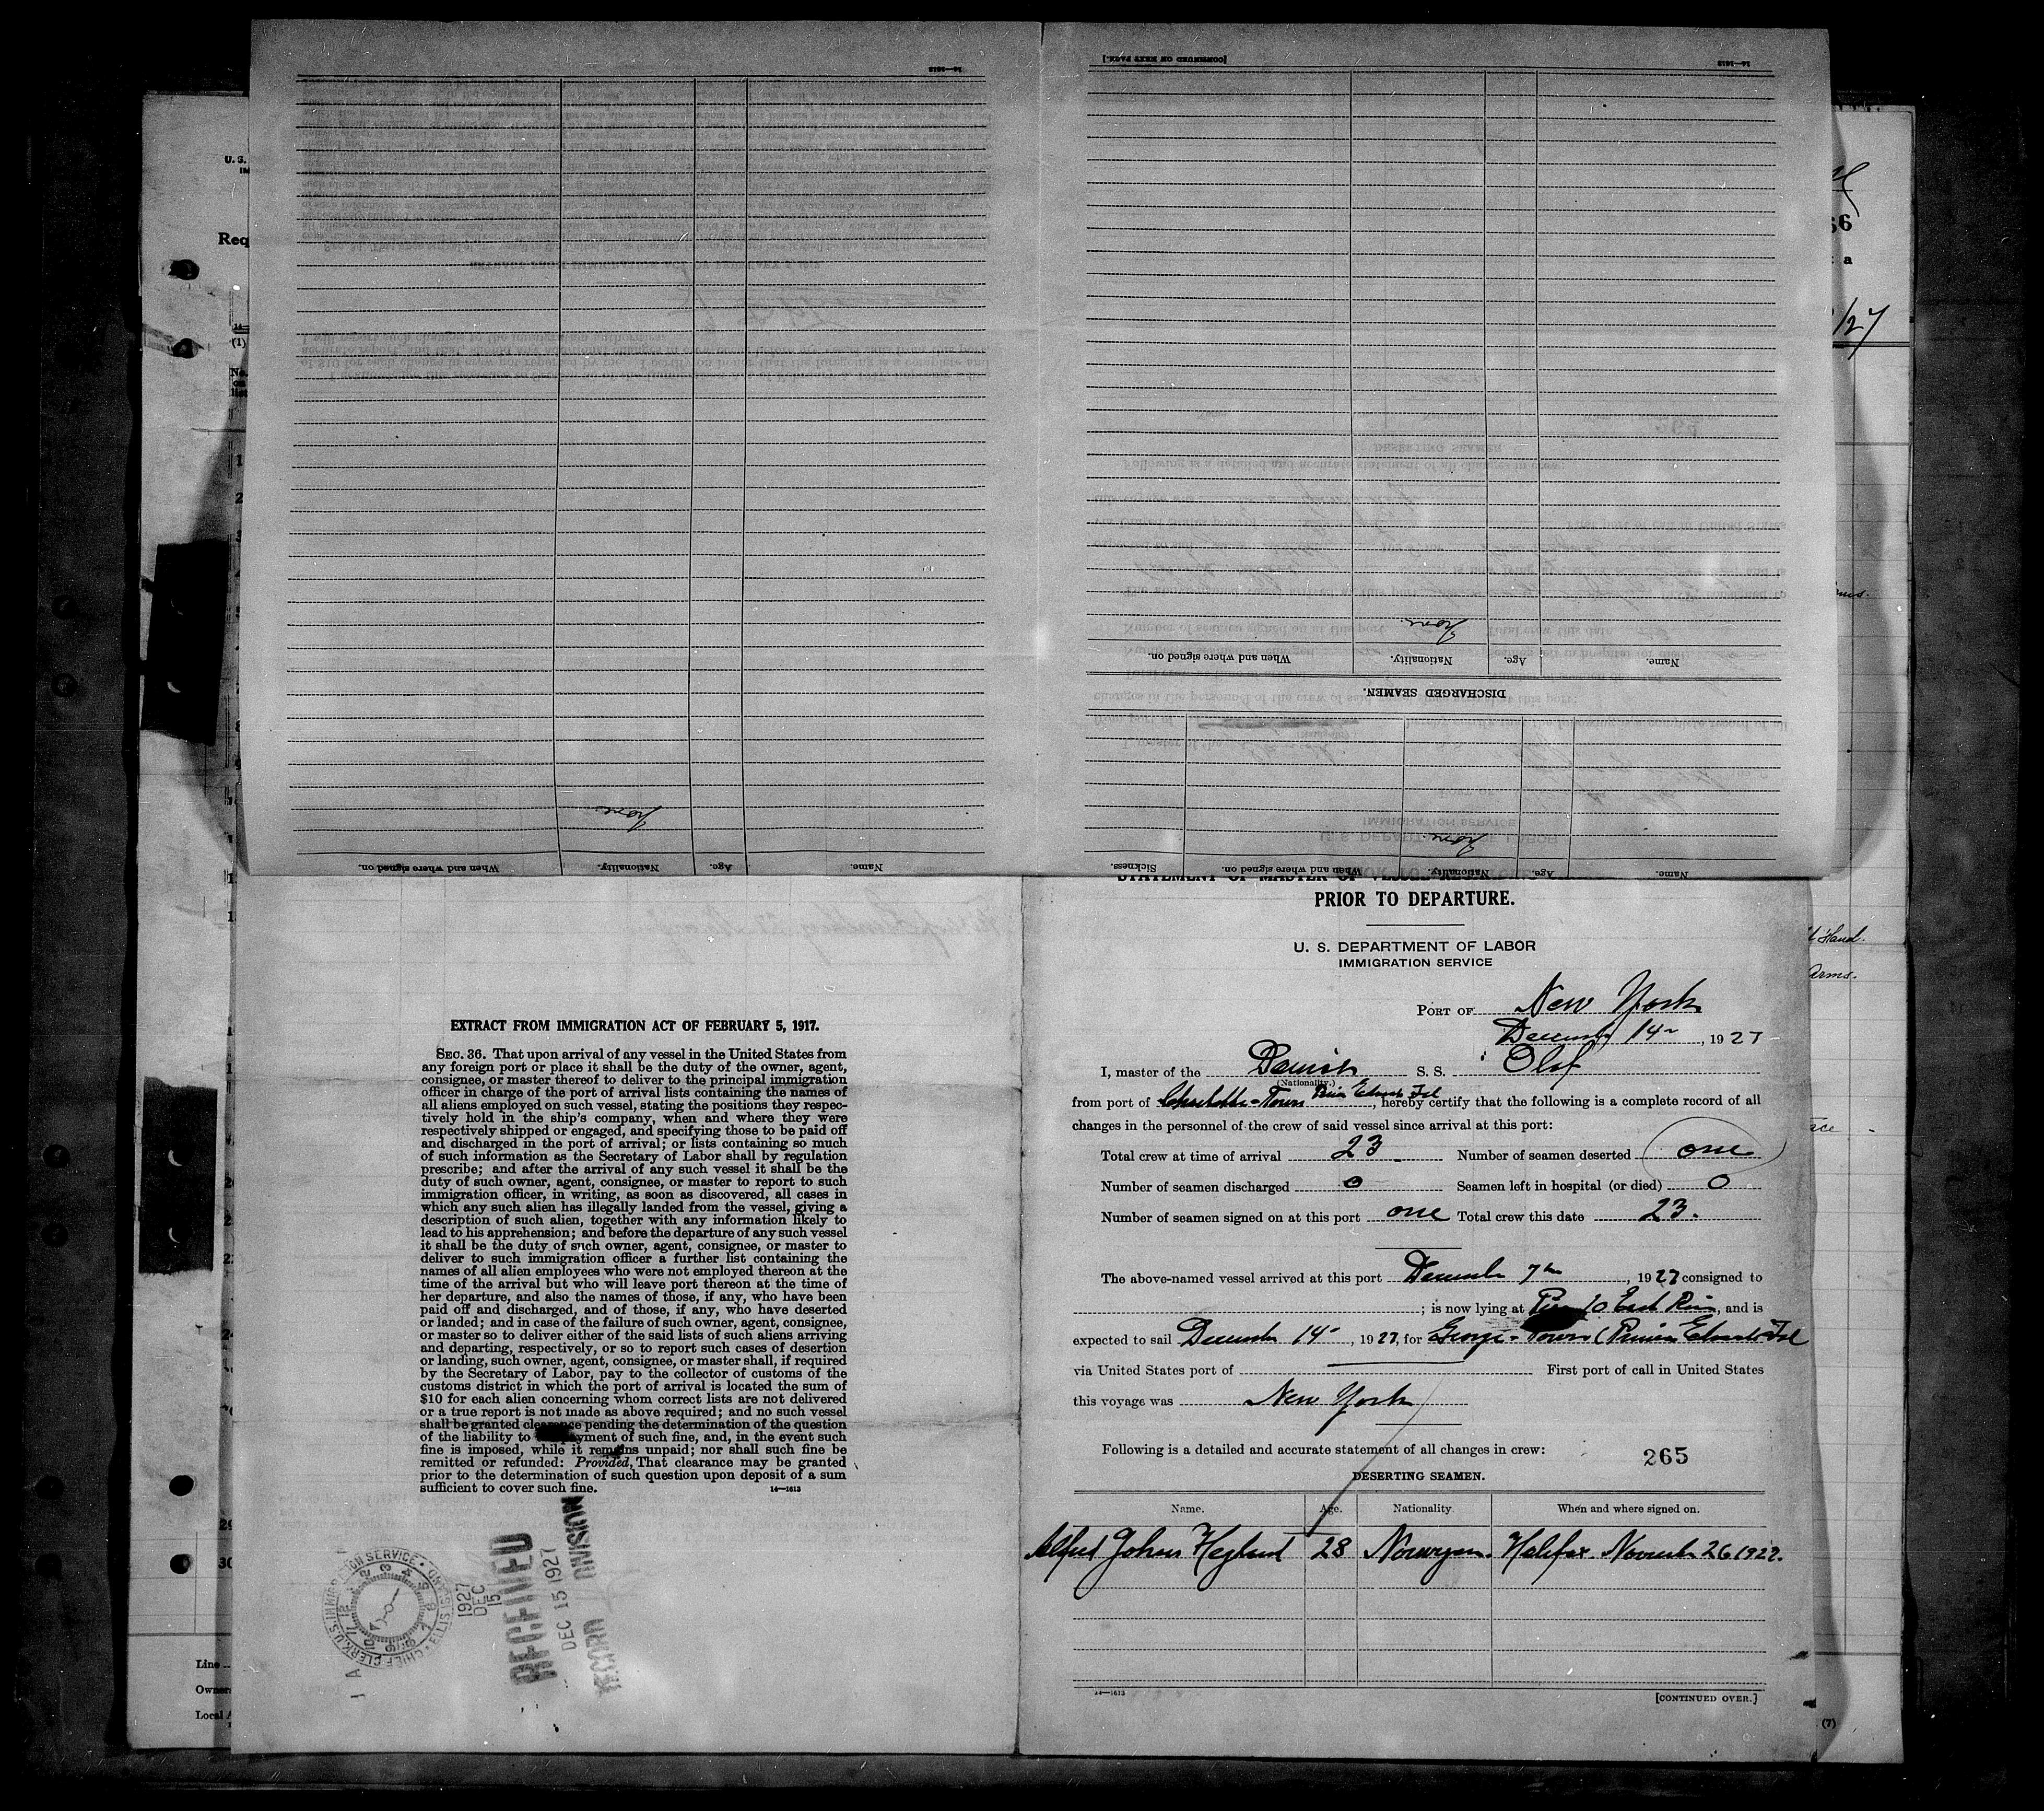 [CONTINUED ON NEXT PAGE.]
14—1613
14—1613
None
When and where signed on.
Nationality.
Age.
Name.
DISCHARGED SEAMEN.
None
Sickness.
When and where signed on.
Nationality.
Age.
Name.
None
When and where signed on.
Nationality.
Age.
Name.
U. S.
Req
(1)
No.
66
a
/27
Hand.
Arms.
Line
Owners
Local A
(7)
EXTRACT FROM IMMIGRATION ACT OF FEBRUARY 5, 1917.
SEC. 36. That upon arrival of any vessel in the United States from
any foreign port or place it shall be the duty of the owner, agent,
consignee, or master thereof to deliver to the principal immigration
officer in charge of the port of arrival lists containing the names of
all aliens employed on such vessel, stating the positions they respec-
tively hold in the ship's company, when and where they were
respectively shipped or engaged, and specifying those to be paid off
and discharged in the port of arrival; or lists containing so much
of such information as the Secretary of Labor shall by regulation
prescribe; and after the arrival of any such vessel it shall be the
duty of such owner, agent, consignee, or master to report to such
immigration officer, in writing, as soon as discovered, all cases in
which any such alien has illegally landed from the vessel, giving a
description of such alien, together with any information likely to
lead to his apprehension; and before the departure of any such vessel
it shall be the duty of such owner, agent, consignee, or master to
deliver to such immigration officer a further list containing the
names of all alien employees who were not employed thereon at the
time of the arrival but who will leave port thereon at the time of
her departure, and also the names of those, if any, who have been
paid off and discharged, and of those, if any, who have deserted
or landed; and in case of the failure of such owner, agent, consignee,
or master so to deliver either of the said lists of such aliens arriving
and departing, respectively, or so to report such cases of desertion
or landing, such owner, agent, consignee, or master shall, if required
by the Secretary of Labor, pay to the collector of customs of the
customs district in which the port of arrival is located the sum of
$10 for each alien concerning whom correct lists are not delivered
or a true report is not made as above required; and no such vessel
shall be granted clearance pending the determination of the question
of the liability to payment of such fine, and, in the event such
fine is imposed, while it remains unpaid; nor shall such fine be
remitted or refunded: Provided, That clearance may be granted
prior to the determination of such question upon deposit of a sum
sufficient to cover such fine.
14—1613
CHIEF CLERK, U.S. IMMIGRATION SERVICE • ELLIS ISLAND •
1927
DEC
15
RECEIVED
DEC 15 1927
RECORD DIVISION
STATEMENT OF MASTER OF VESSEL
PRIOR TO DEPARTURE.
U. S. DEPARTMENT OF LABOR
IMMIGRATION SERVICE
PORT OF New York
December 14, 1927
I, master of the Danish S. S. Olaf
(Nationality.)
from port of Charlotte-Town Prin Edwards Isl, hereby certify that the following is a complete record of all
changes in the personnel of the crew of said vessel since arrival at this port:
Total crew at time of arrival 23 Number of seamen deserted one
Number of seamen discharged 0 Seamen left in hospital (or died) 0
Number of seamen signed on at this port one Total crew this date 23.
The above-named vessel arrived at this port December 7th, 1927 consigned to
; is now lying at Pier 10 East River, and is
expected to sail December 14, 1927, for George-Town (Princes Edwards Isl
via United States port of First port of call in United States
this voyage was New York
Following is a detailed and accurate statement of all changes in crew:
265
DESERTING SEAMEN.
Name. Age. Nationality When and where signed on.
Alfred Johan Heglund 28 Norwegian. Halifax November 26 1927.
14—1613
[CONTINUED OVER.]